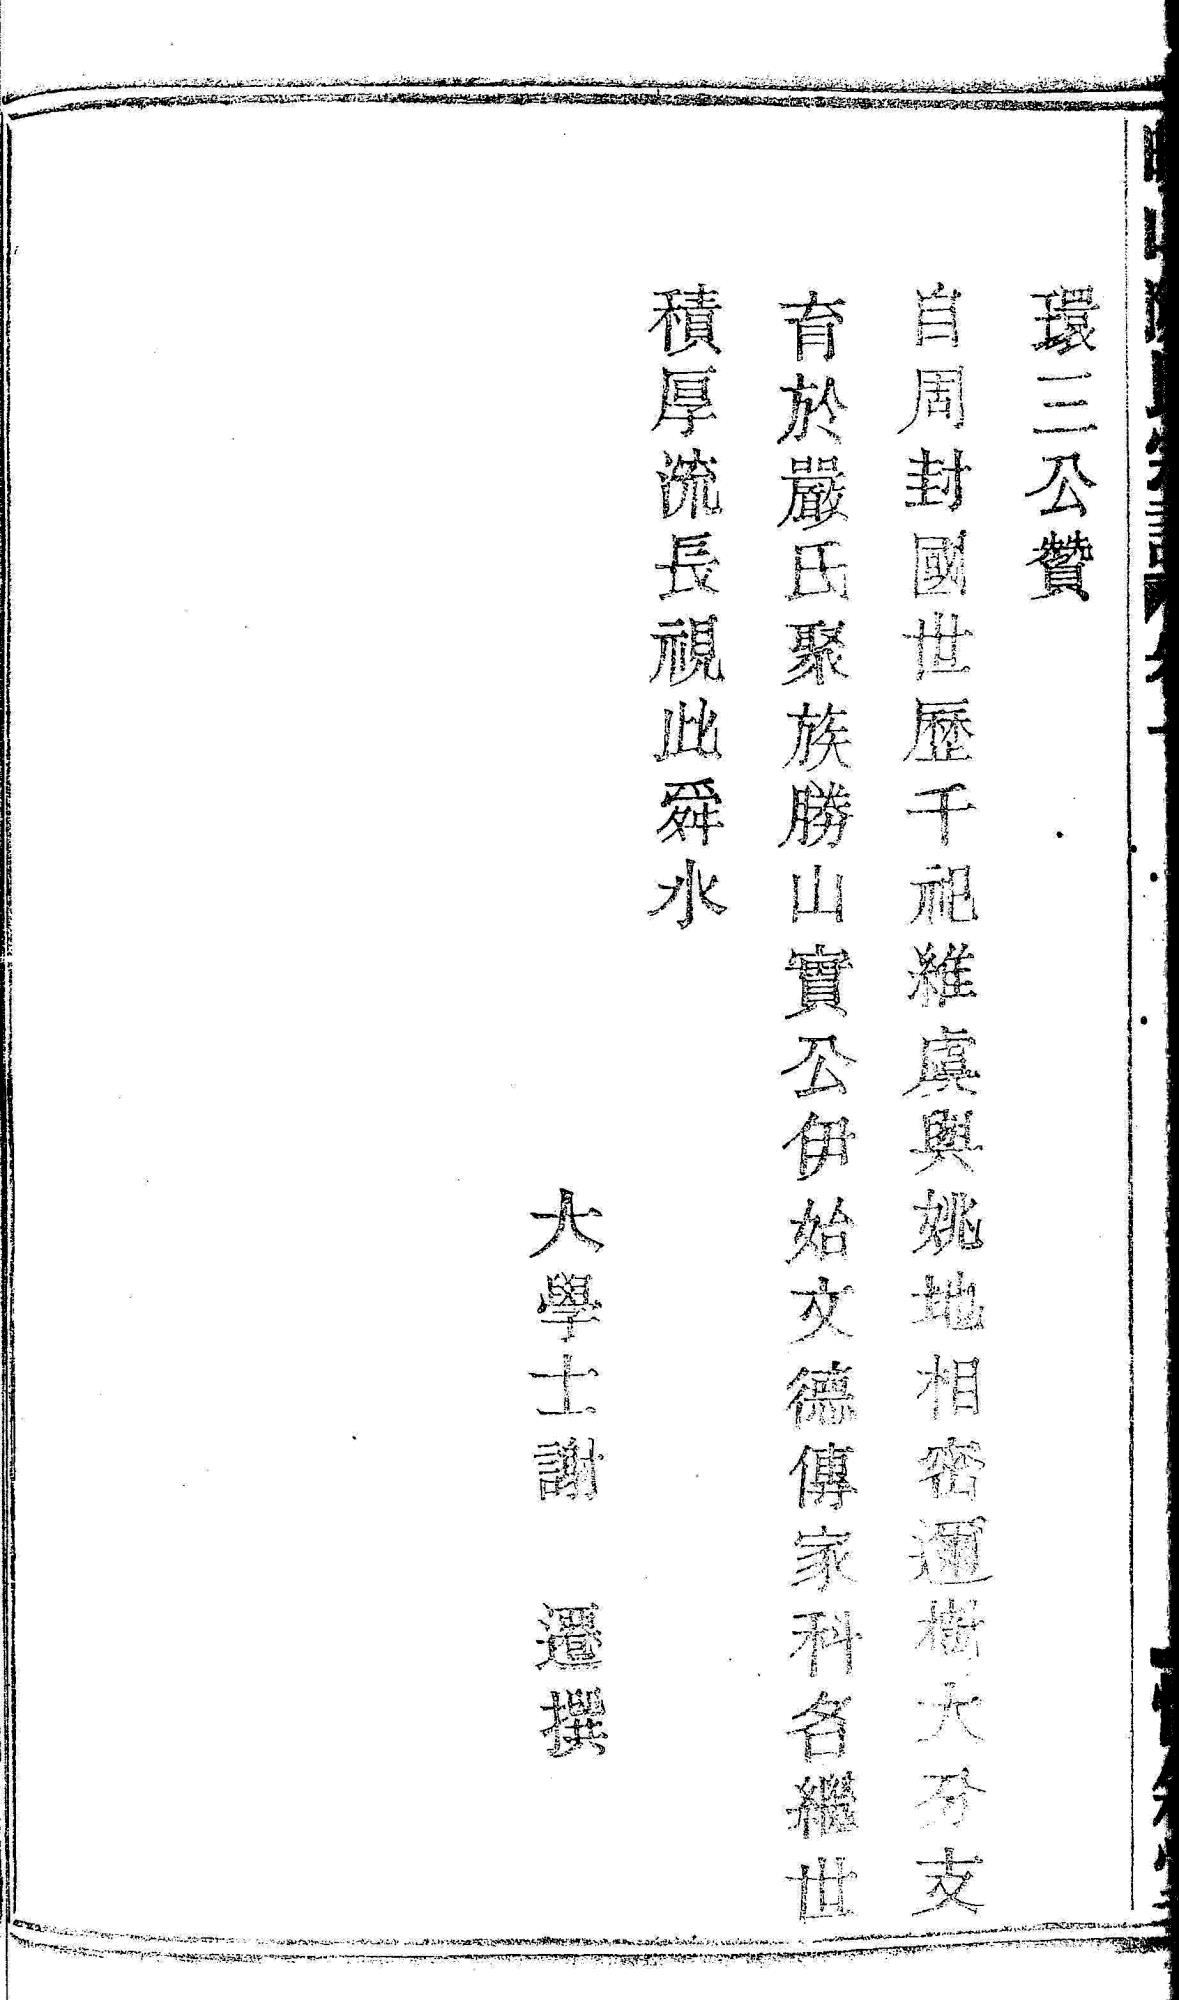 環三公贊
自周封國世歷千祀維虞與姚地相密邇樹大分支
育於嚴氏聚族勝山實公伊始文德傳家科名繼世
積厚流長視此舜水
大學士謝 遷撰